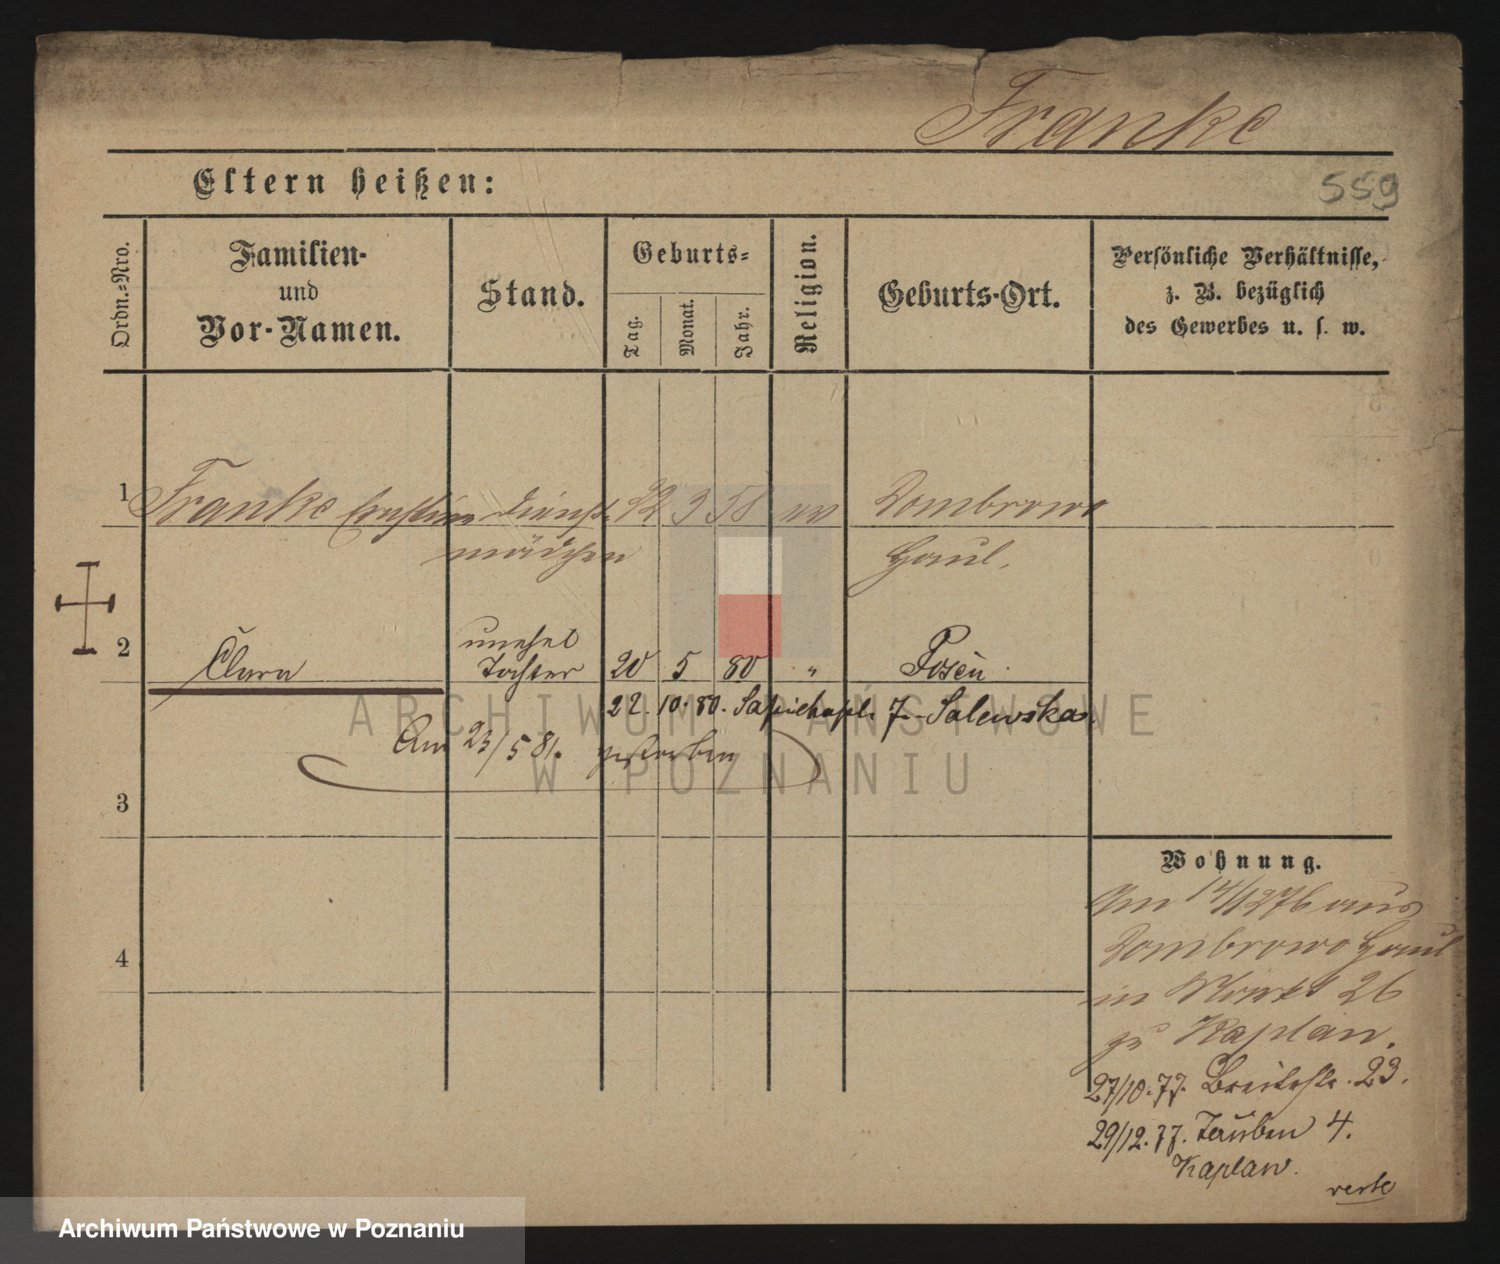 Franke
Eltern heißen:
559
Ordn.-Nro.
Familien-
und
Vor-Namen.
Stand.
Geburts-
Tag.
Monat.
Jahr.
Religion.
Geburts-Ort.
Persönliche Verhältnisse,
z. B. bezüglich
des Gewerbes u. s. w.
1 Franke Ernestine Dienst- 3 58 ev Dombrowo
mädchen Haul.
2 Clara unehel Tochter 20 5 80 " Posen
22. 10. 80. Sapiehapl. 7. Salewska
Am 23/5 81. gestorben
3
4
Wohnung.
Am 14/12 76 aus
Dombrowo Haul
in Markt 26
zu Kaplan.
27/10. 77. Breitestr. 23.
29/12. 77. Tauben 4.
Kaplan.
verte
ARCHIWUM PAŃSTWOWE
W POZNANIU
Archiwum Państwowe w Poznaniu